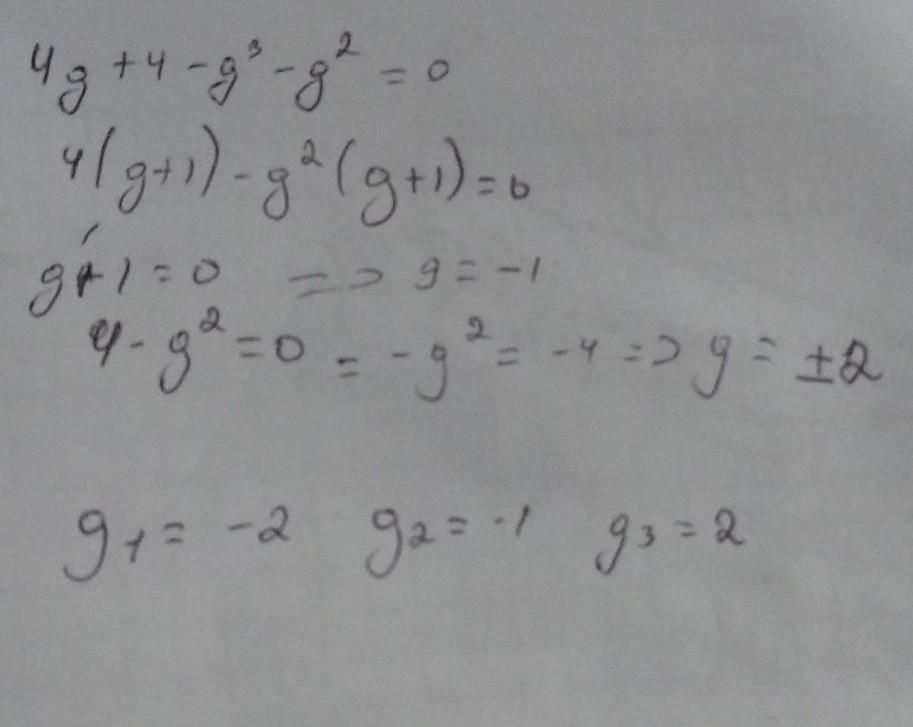 4g + 4 - g³ - g² = 0
4(g+1) - g²(g+1) = 0
g+1 = 0 => g = -1
4 - g² = 0 = -g² = -4 => g = ±2
g₁ = -2 g₂ = -1 g₃ = 2